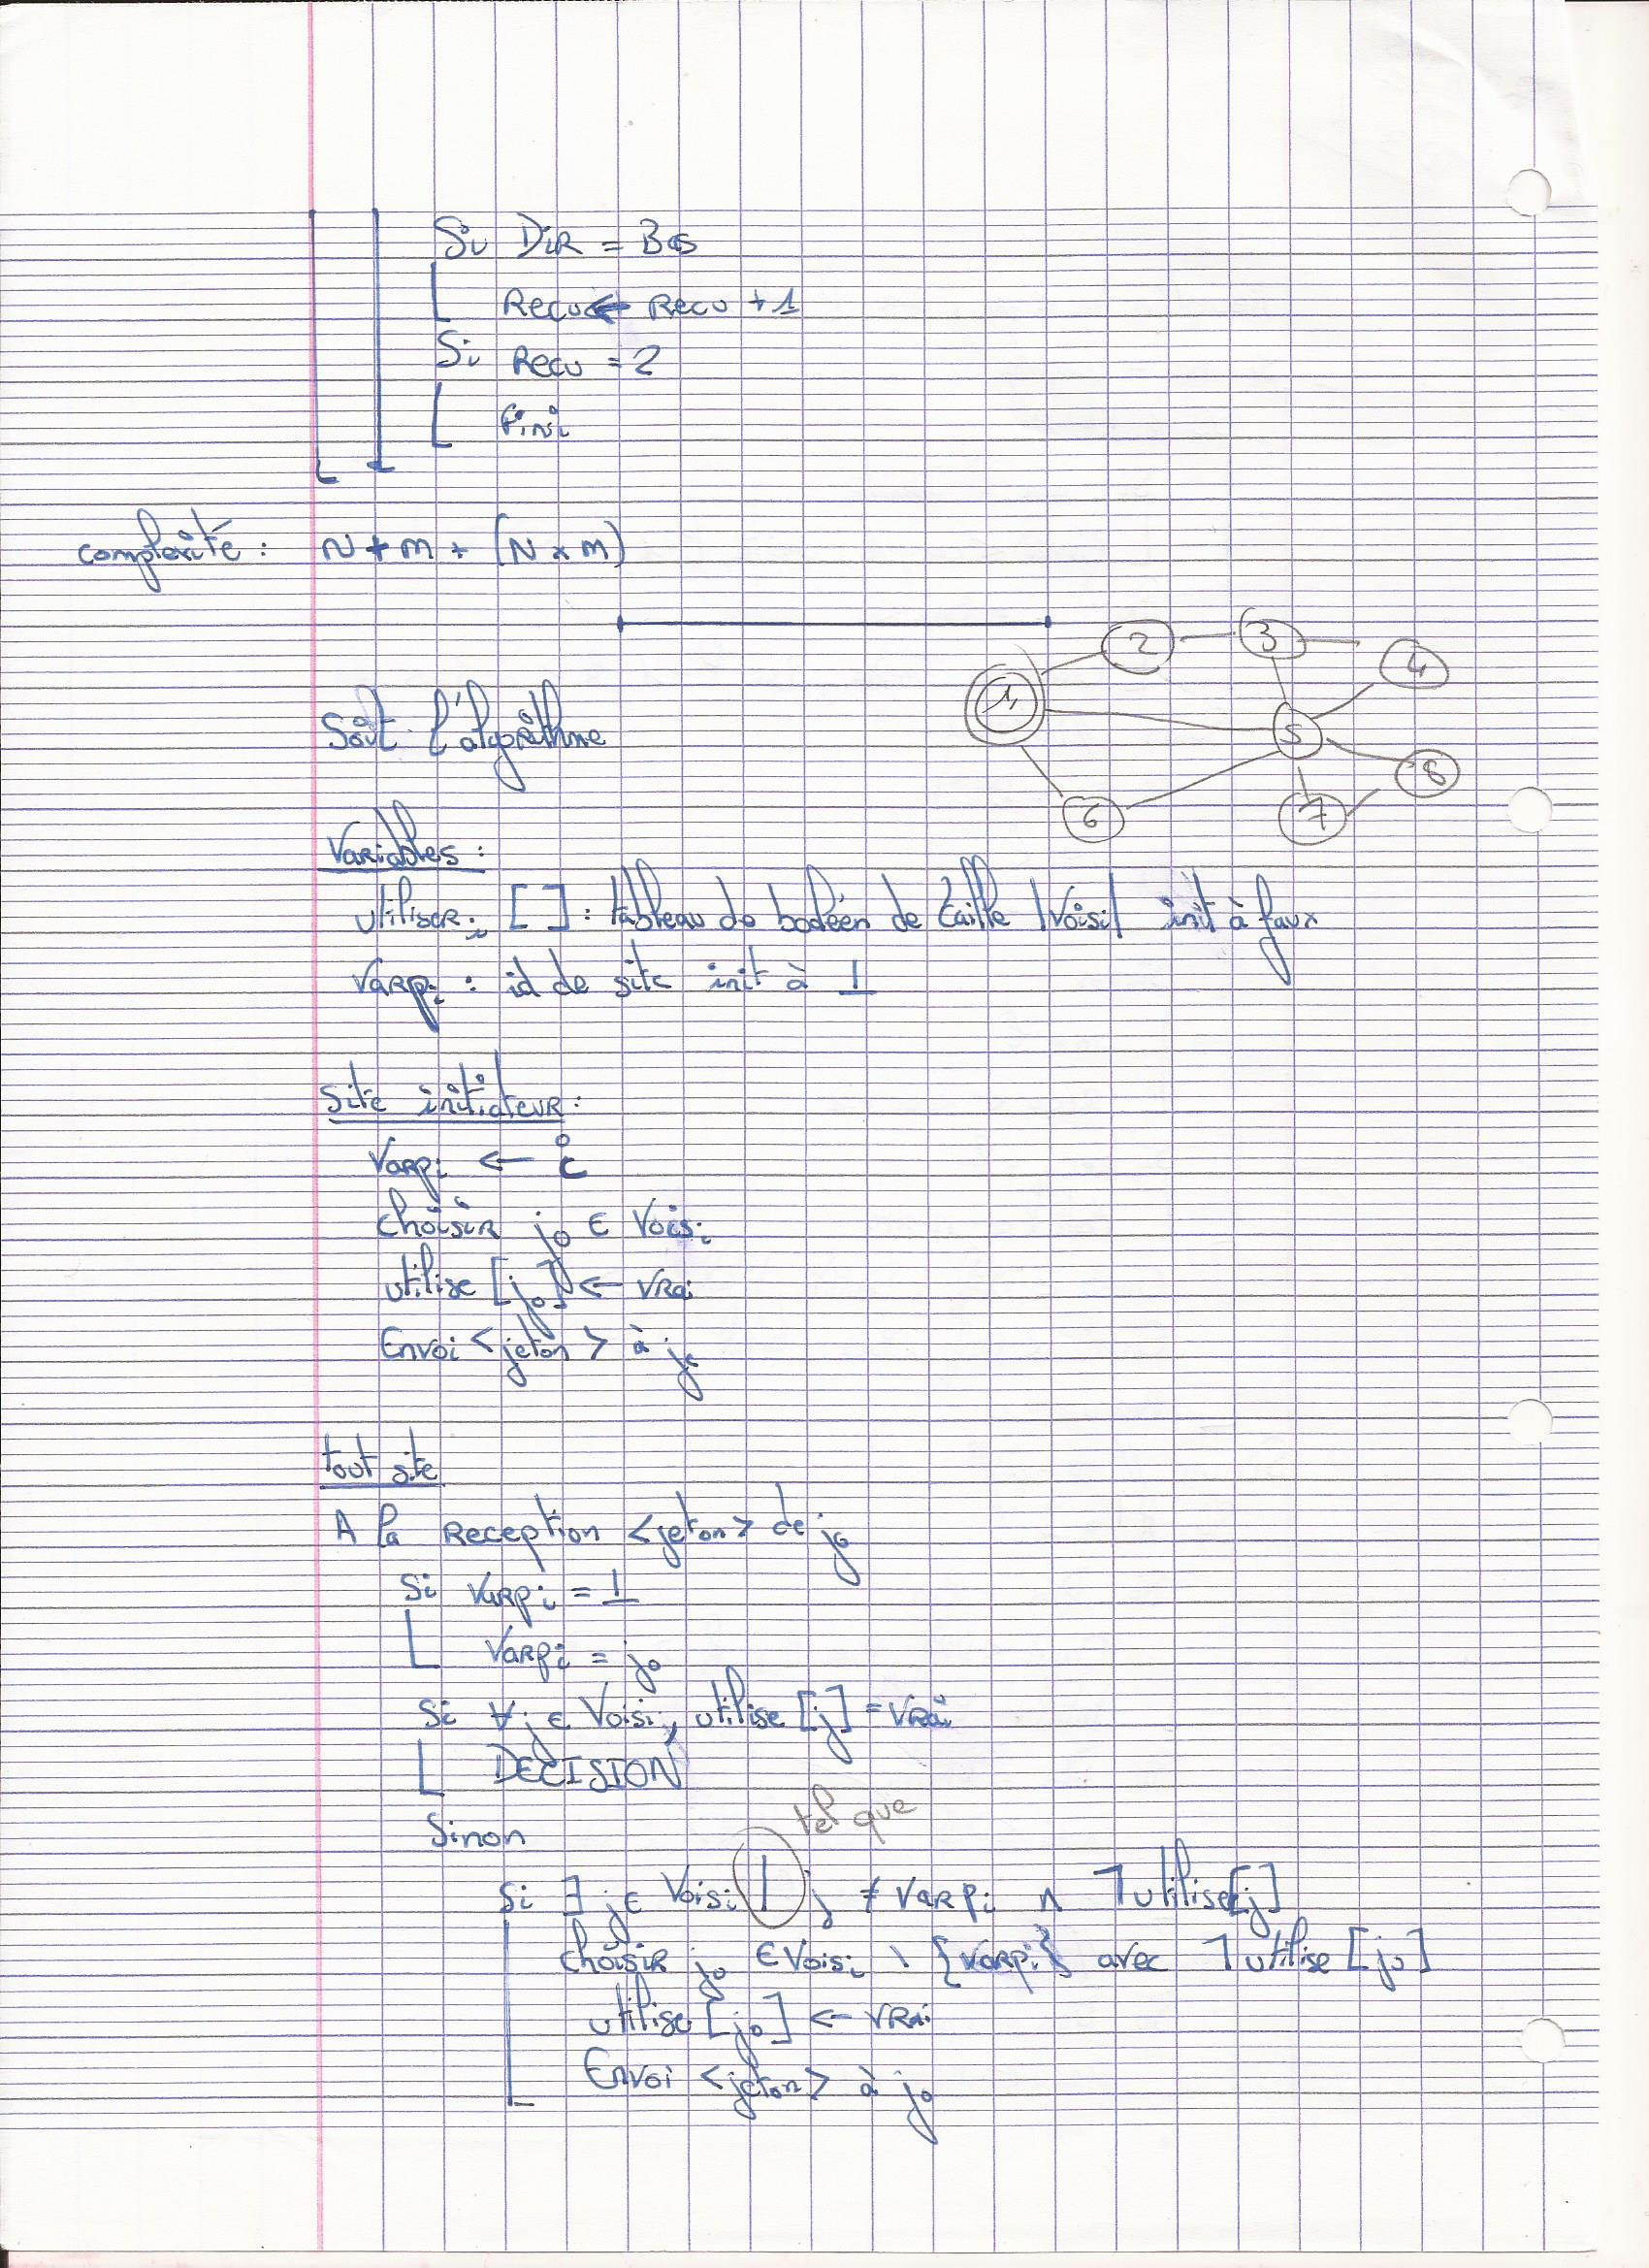 Si Dir = Bas
Recu ← Recu + 1
Si Recu = 2
Fini
complexité : N + m + (N x m)
1 2 3 4 5 6 7 8
Soit l'algorithme
Variables :
utiliseri [ ] : tableau de booléen de taille |Voisi| init à faux
Varpi : id de site init à ⊥
Site initiateur :
Varpi ← i
choisir jo ∈ Voisi
utilise [jo] ← vrai
Envoi <jeton> à jo
tout site
A la Reception <jeton> de jo
Si Varpi = ⊥
Varpi = jo
Si ∀ j ∈ Voisi, utilise [j] = vrai
DECISION
Sinon
tel que
Si ∃ j ∈ Voisi | j ≠ Varpi ∧ ¬utilise[j]
choisir jo ∈ Voisi \ {Varpi} avec ¬utilise [jo]
utilise [jo] ← vrai
Envoi <jeton> à jo